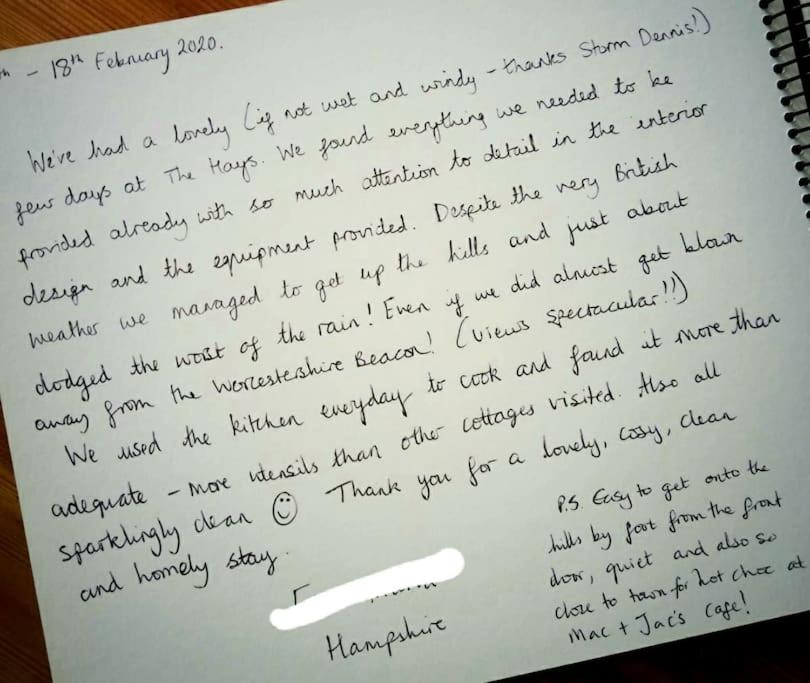 - 18th February 2020.
We've had a lovely (if not wet and windy - thanks Storm Dennis!)
few days at The Hays. We found everything we needed to be
provided already with so much attention to detail in the interior
design and the equipment provided. Despite the very British
weather we managed to get up the hills and just about
dodged the worst of the rain! Even if we did almost get blown
away from the Worcestershire Beacon! (views spectacular!!)
We used the kitchen everyday to cook and found it more than
adequate - more utensils than other cottages visited. Also all
sparklingly clean ☺ Thank you for a lovely, cosy, clean
and homely stay.
Hampshire
P.S. Easy to get onto the
hills by foot from the front
door, quiet and also so
close to town for hot choc at
Mac + Jac's Cafe!